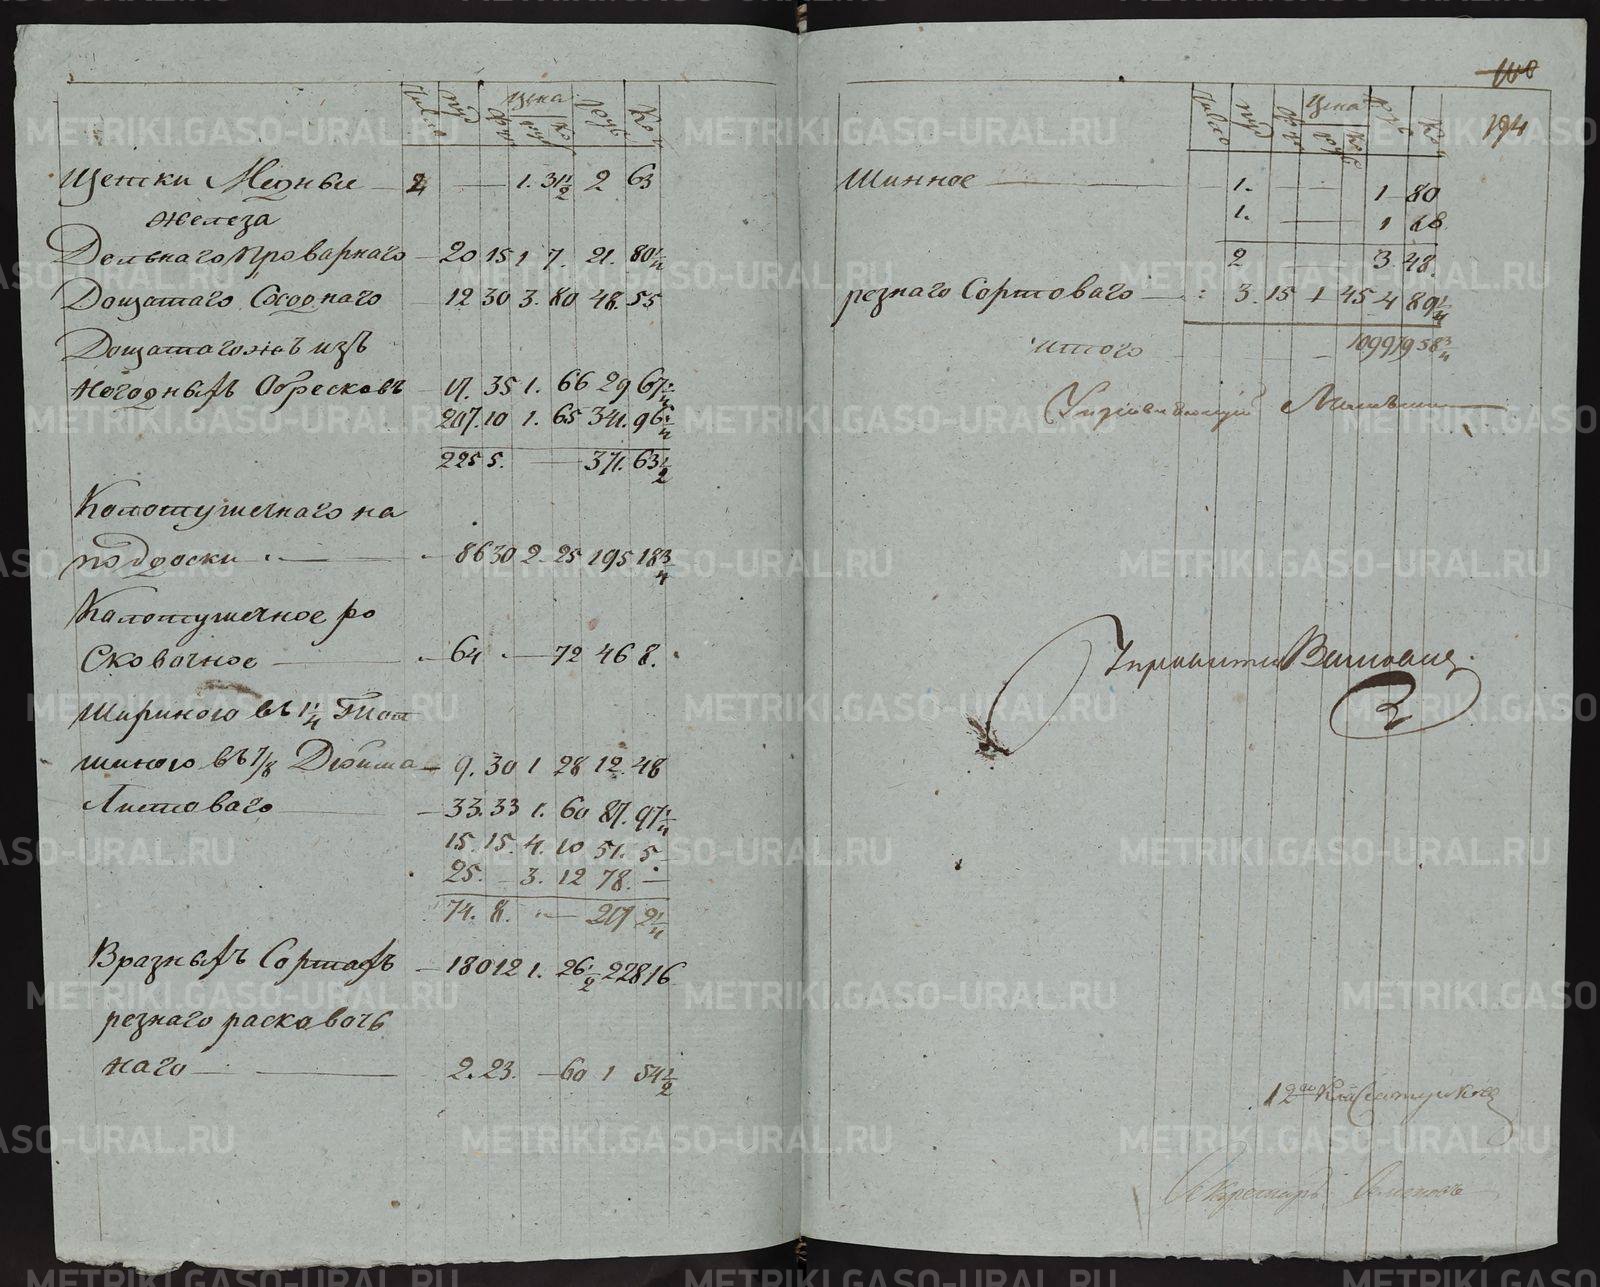 Число пуд фун Цена руб ко руб Ко
Щетки Медныя 2 — 1. 31 1/2 2 63
железа
Дельнаго проварнаго 20 15 1 7. 21. 80 1/4
Дощатаго Сходнаго 12 30 3. 80 48. 55
Дощатагожъ изъ
негодныхъ Обресковъ 17. 35 1. 66 29 67 1/4
207. 10 1. 65 341. 96 1/4
225 5. — 371. 63 1/2
Колотушечнаго на
подроски 86 30 2 25 195 18 3/4
Колотушечное ро
Сковочное 64 — 72 46 8.
Шириною въ 1 1/4 Тол
щиною въ 7/8 Дюйма 9. 30 1 28 12. 48
Листоваго 33. 33 1. 60 87. 97 1/4
15. 15. 4. 10 51. 5
25. — 3. 12 78. —
74. 8. — 217 2 1/4
В разныхъ Сортахъ 180 12 1. 26 1/2 228 16
резнаго расковоч
наго 2. 23. — 60 1 54 1/2
100
194
Число пуд фун Цена руб коп руб Ко
Шинное 1. — 1 80
1. — 1 68
2 — 3. 48.
резнаго Сортоваго 3. 15 1 45 4 89 1/4
итого 109919 58 3/4
Управляющий
Секретарь